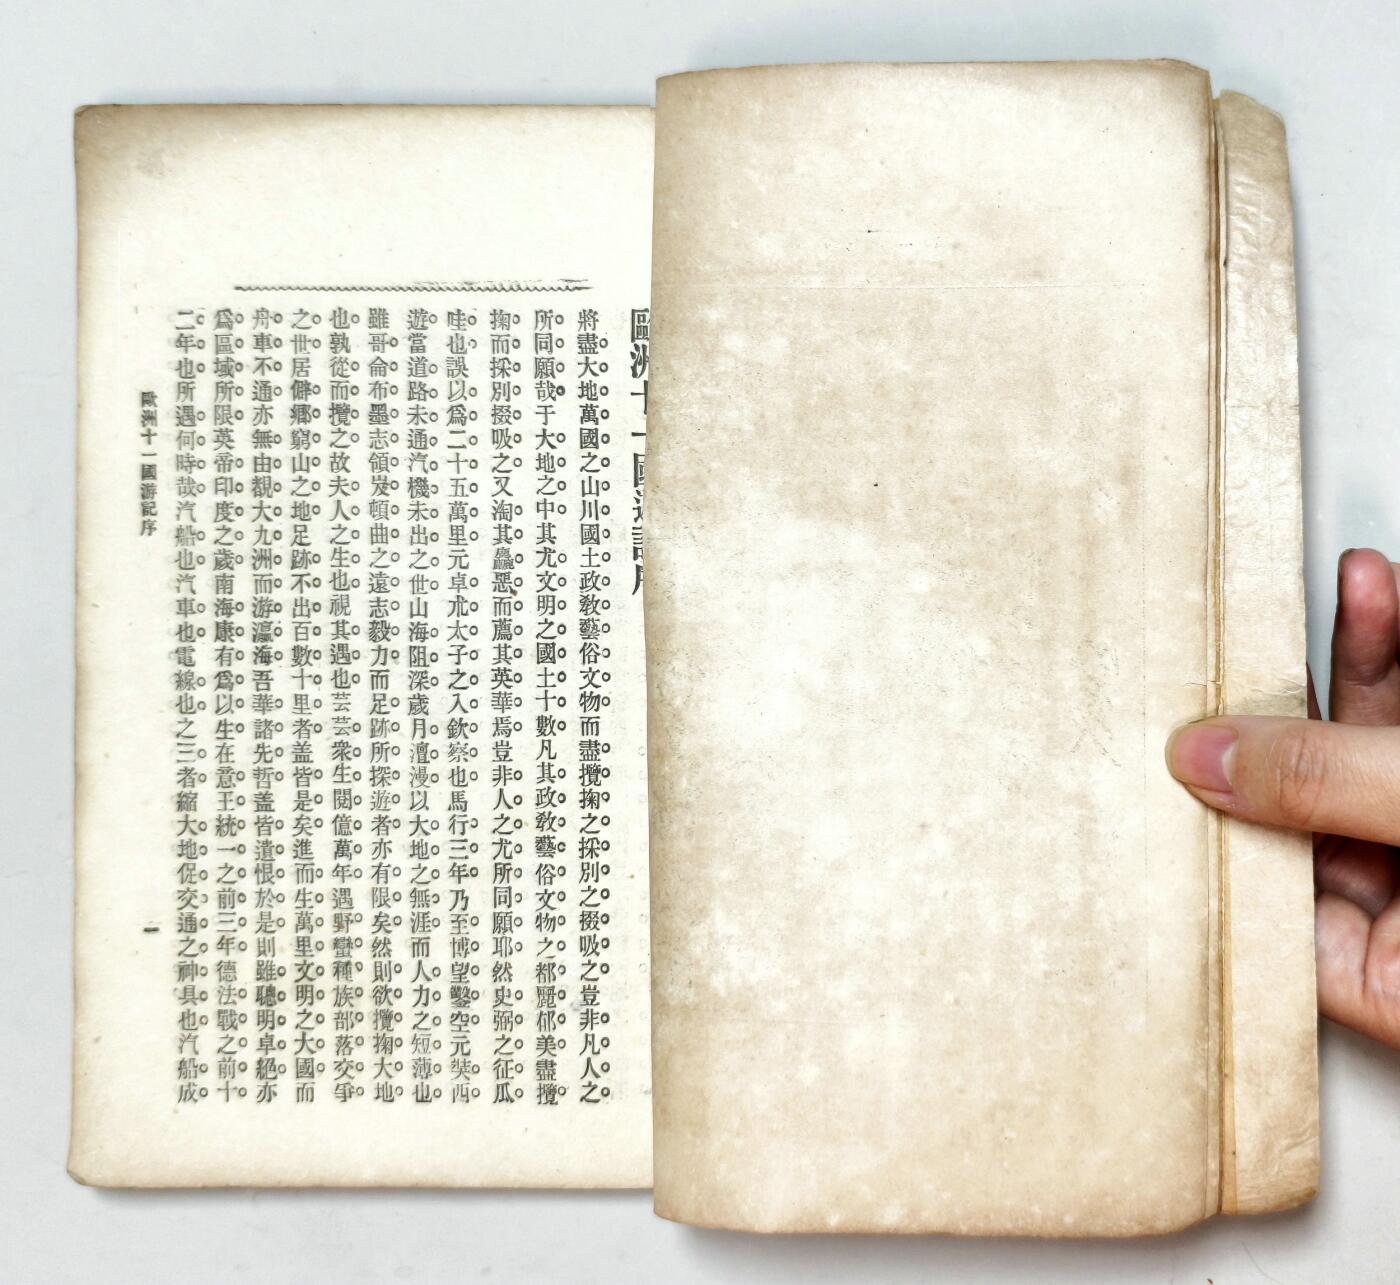 歐洲十一國遊記序
將盡大地萬國之山川國土政敎藝俗文物而盡攬掬之採別之掇吸之豈非凡人之
所同願哉于大地之中其尤文明之國土十數凡其政敎藝俗文物之都麗郁美盡攬
掬而採別掇吸之又淘其麤惡而薦其英華焉豈非人之尤所同願耶然史弼之征瓜
哇也誤以爲二十五萬里元卓朮太子之入欽察也馬行三年乃至博望鑿空元奘西
遊當道路未通汽機未出之世山海阻深歲月澶漫以大地之無涯而人力之短薄也
雖哥侖布墨志領岌頓曲之遠志毅力而足跡所探遊者亦有限矣然則欲攬掬大地
也孰從而攬之故夫人之生也視其遇也芸芸衆生閱億萬年遇野蠻種族部落交爭
之世居僻鄕窮山之地足跡不出百數十里者盖皆是矣進而生萬里文明之大國而
舟車不通亦無由覩大九洲而游瀛海吾華諸先哲盖皆遺恨於是則雖聰明卓絕亦
爲區域所限英帝印度之歲南海康有爲以生在意王統一之前三年德法戰之前十
二年也所遇何時哉汽船也汽車也電線也之三者縮大地促交通之神具也汽船成
歐洲十一國游記序
一